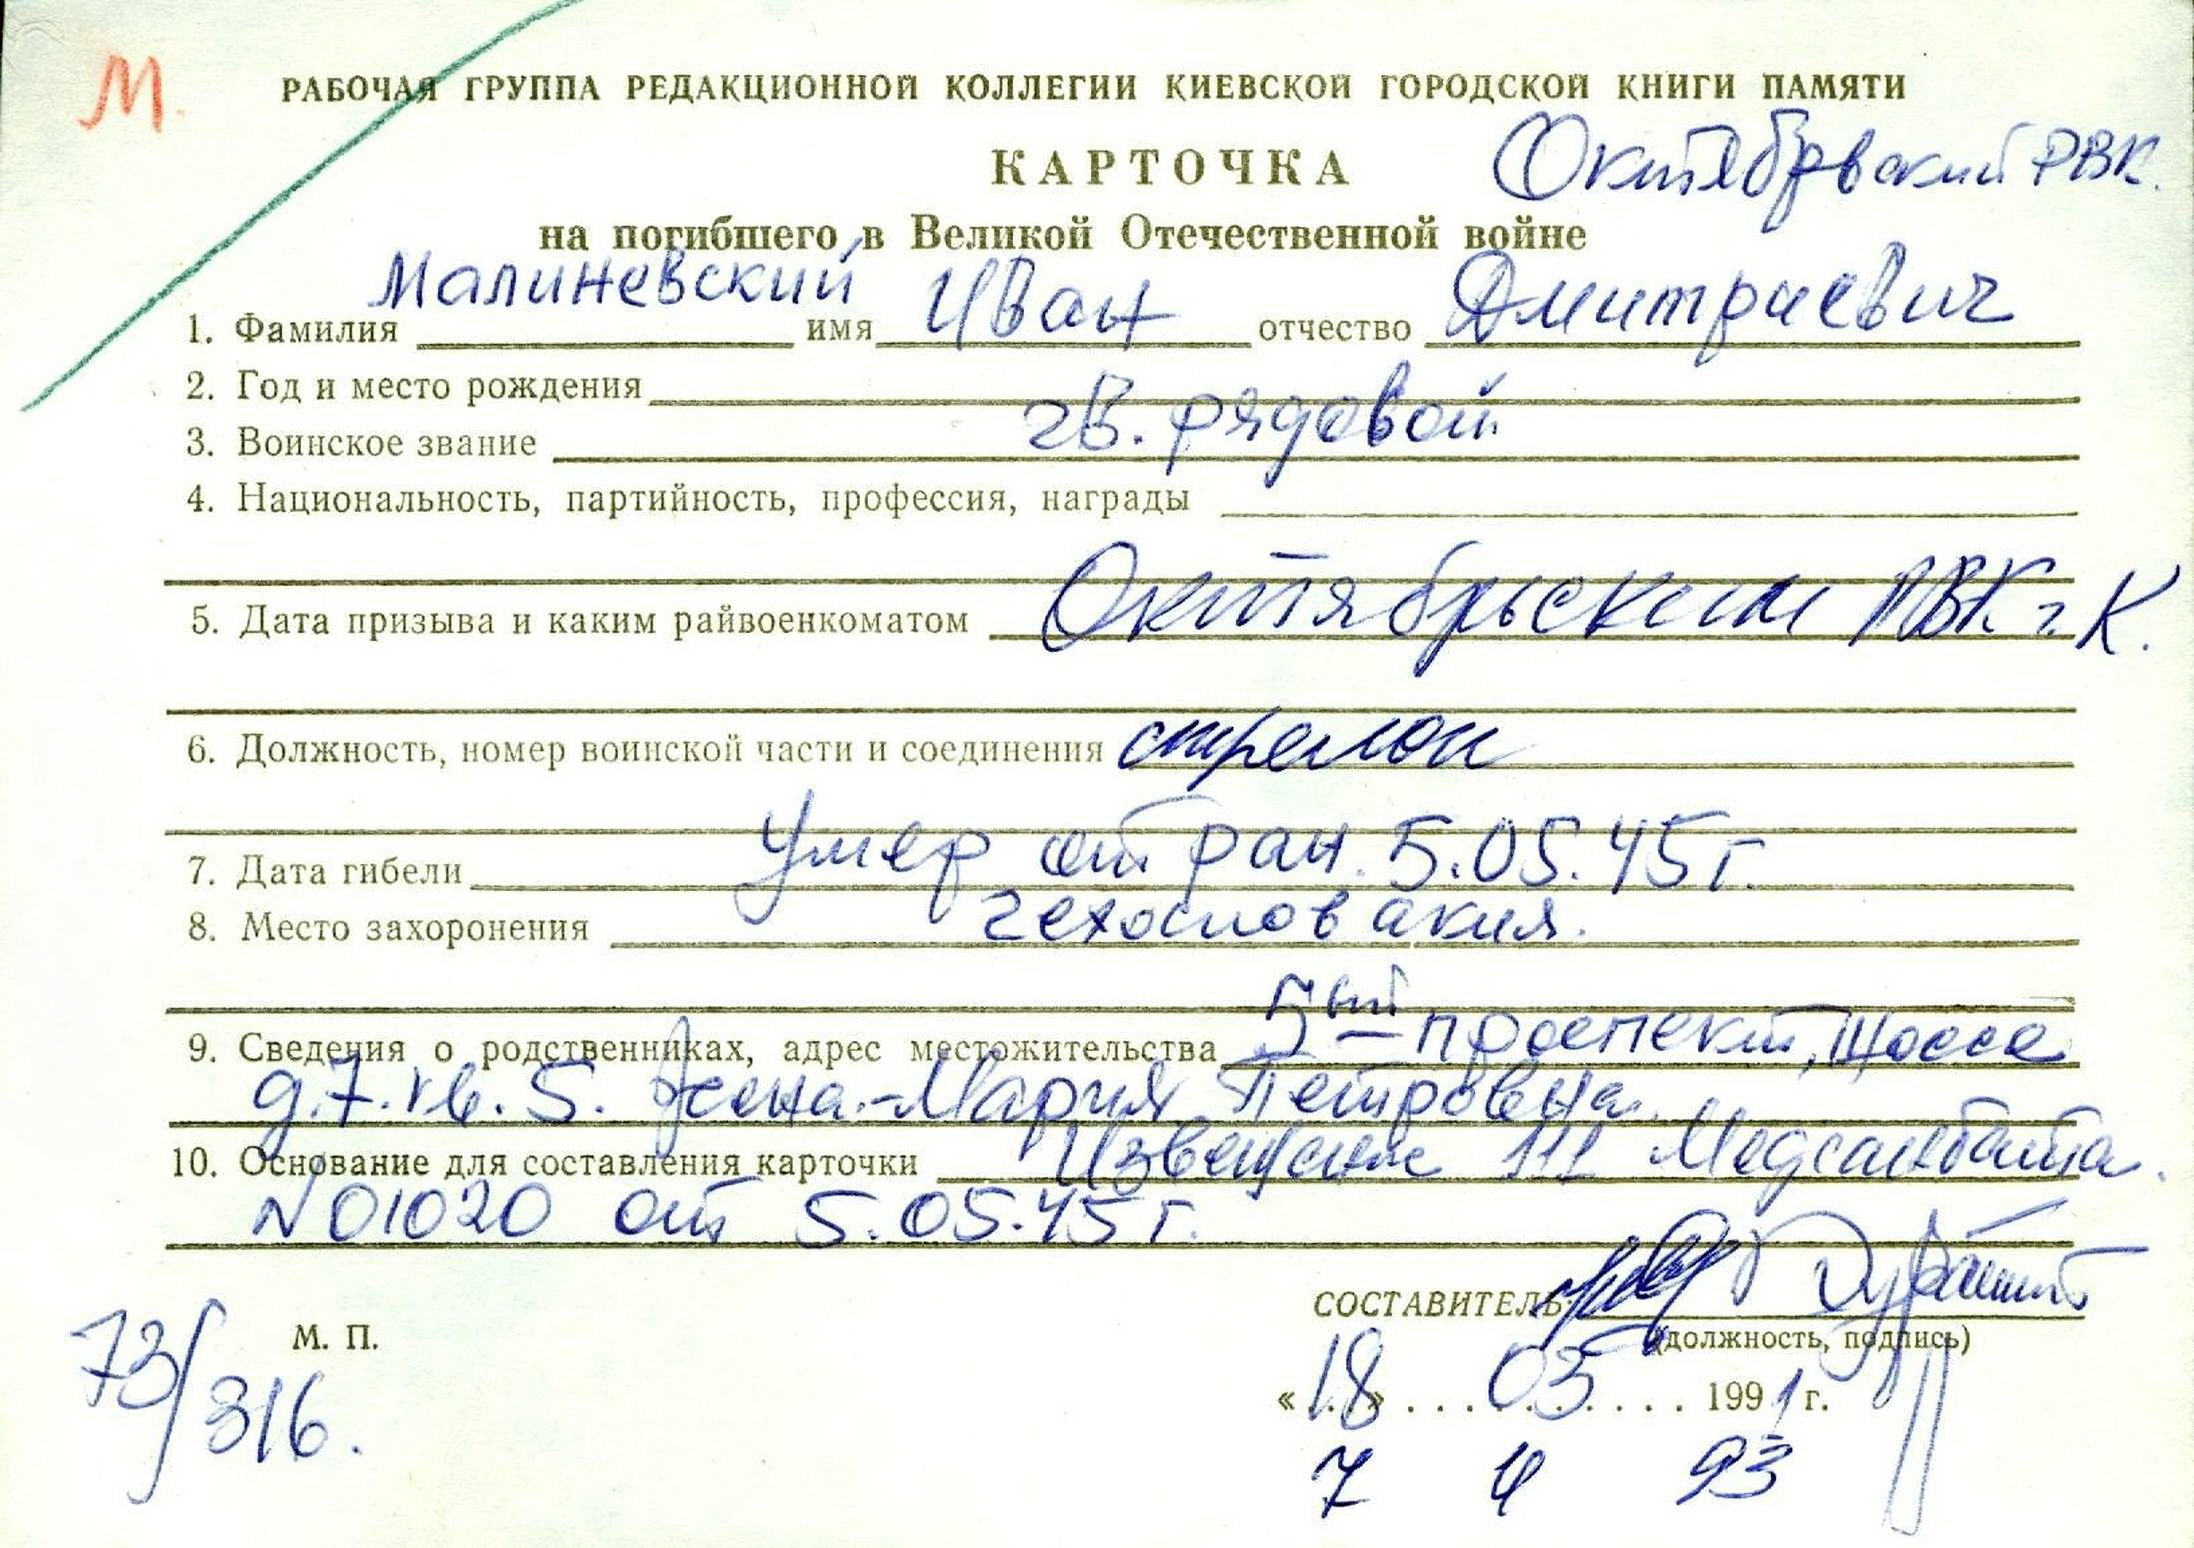 М.
РАБОЧАЯ ГРУППА РЕДАКЦИОННОЙ КОЛЛЕГИИ КИЕВСКОЙ ГОРОДСКОЙ КНИГИ ПАМЯТИ
КАРТОЧКА
Октябрьский РВК.
на погибшего в Великой Отечественной войне
1. Фамилия Малиневский имя Иван отчество Дмитриевич
2. Год и место рождения
3. Воинское звание гв. рядовой
4. Национальность, партийность, профессия, награды
5. Дата призыва и каким райвоенкоматом Октябрьским РВК г. К.
6. Должность, номер воинской части и соединения стрелок
7. Дата гибели Умер от ран. 5.05.45 г.
8. Место захоронения Чехословакия.
9. Сведения о родственниках, адрес местожительства 5ый проспект, Шоссе
д. 7. кв. 5. Жена.-Мария Петровна.
10. Основание для составления карточки Извещение 111 Медсанбата.
N 01020 от 5.05.45 г.
СОСТАВИТЕЛЬ:
М. П.
(должность, подпись)
73/316.
«18» 03 1991 г.
7 4 93